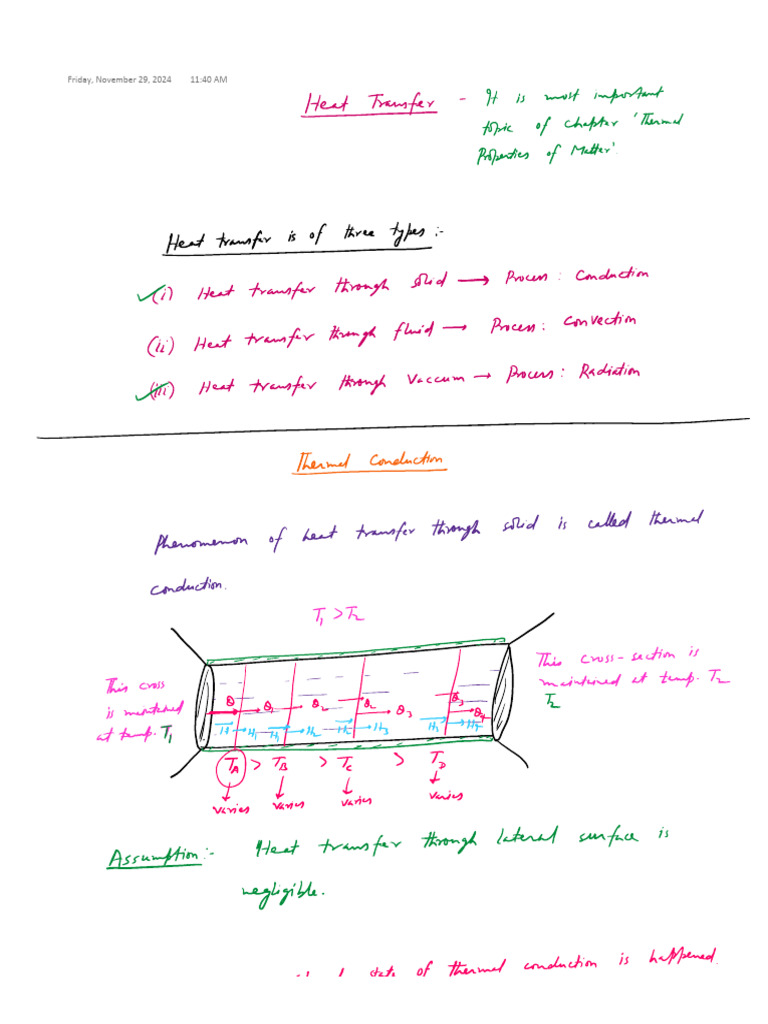 Friday, November 29, 2024 11:40 AM
Heat Transfer - It is most important
topic of chapter 'Thermal
Properties of Matter'.
Heat transfer is of three types :-
(i) Heat transfer through solid → Process : Conduction
(ii) Heat transfer through fluid → Process : Convection
(iii) Heat transfer through Vaccum → Process : Radiation
Thermal Conduction
Phenomenon of heat transfer through solid is called thermal
conduction.
T₁ > T₂
This cross
is maintained
at temp. T₁
This cross-section is
maintained at temp. T₂
T₂
Q Q₁ Q₂ Q₂ Q₃ Q₃ Q₄
H H₁ H₁ H₂ H₂ H₃ H₃ H₄
T_A > T_B > T_C > T_D
varies varies varies varies
Assumption :- Heat transfer through lateral surface is
negligible.
state of thermal conduction is happened.